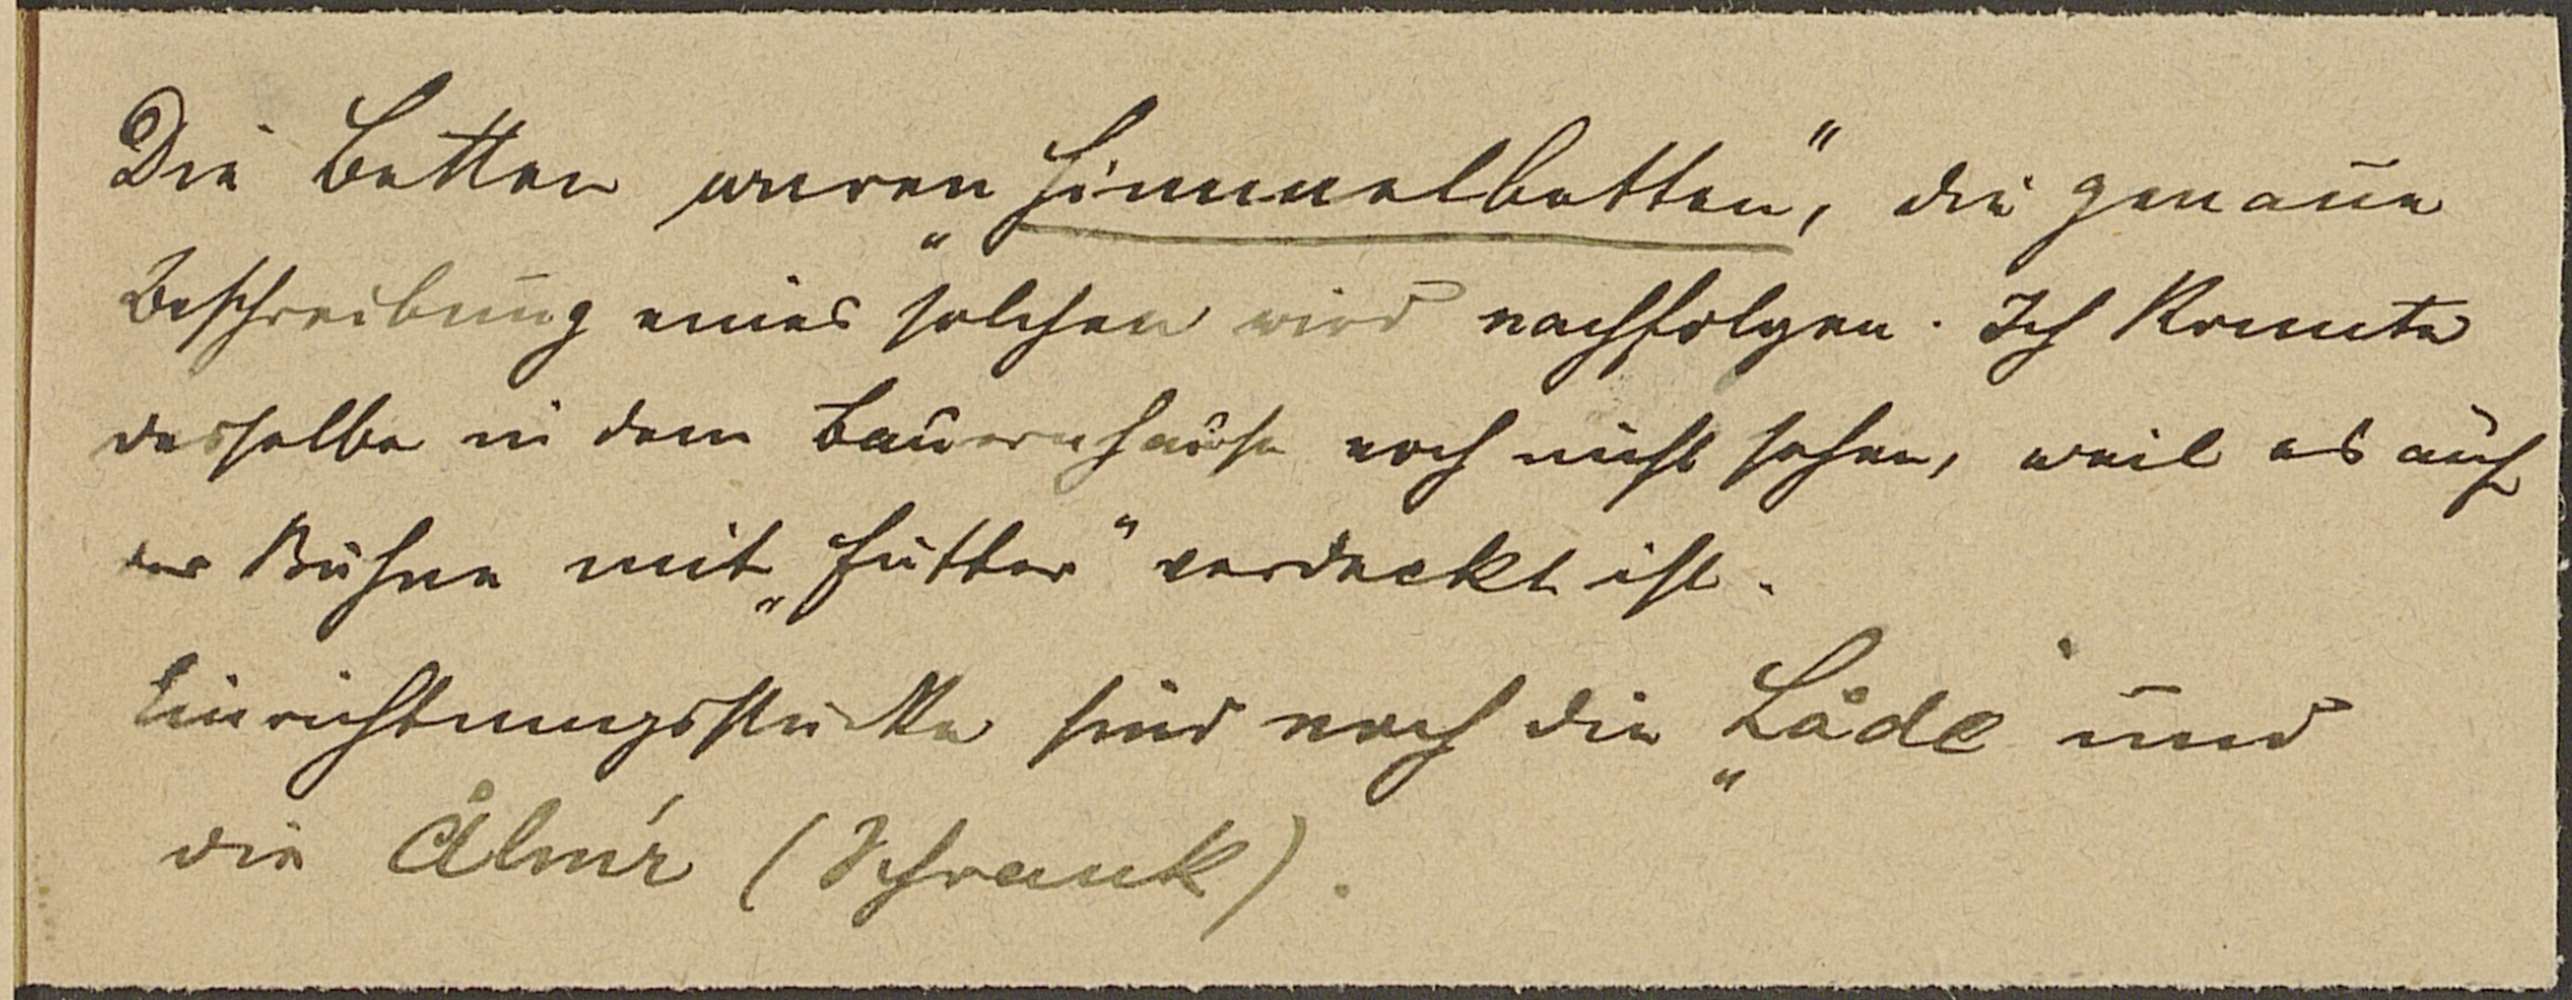 Die Betten waren „Himmelbetten“, die genaue
Beschreibung eines solchen wird nachfolgen. Ich konnte
dasselbe in dem Bauernhause noch nicht sehen, weil es auf
der Bühne mit „Futter“ verdeckt ist.
Einrichtungsstücke sind noch die „Låde“ und
die Ålmŕ (Schrank).